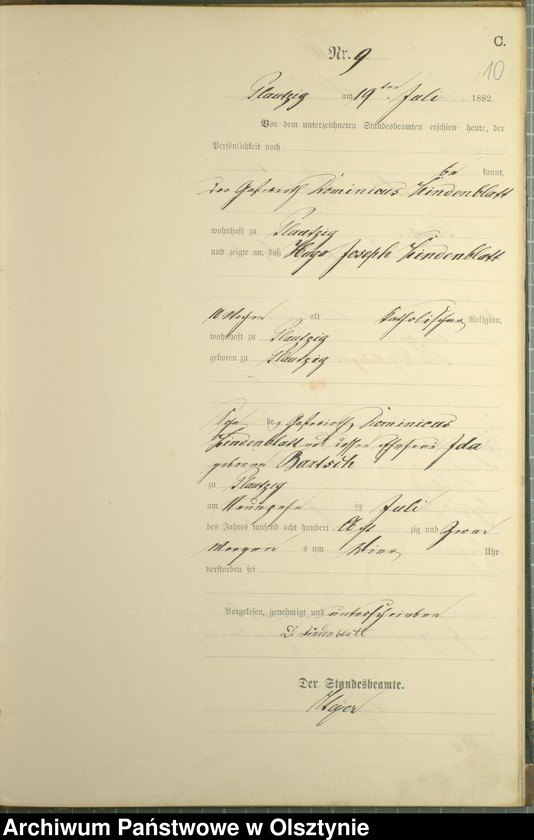 C.
Nr. 9
10
Plautzig am 19ten Juli 1882.
Vor dem unterzeichneten Standesbeamten erschien heute, der
Persönlichkeit nach
be kannt,
der Gastwirth Dominicus Lindenblatt
wohnhaft zu Plautzig
und zeigte an, daß Hugo Joseph Lindenblatt
Wochen alt katholischer Religion,
wohnhaft zu Plautzig
geboren zu Plautzig
Sohn des Gastwirths Dominicus
Lindenblatt und dessen Ehefrau Ida
geborene Bartsch
zu Plautzig
am Neunzehn Juli
des Jahres tausend acht hundert Acht zig und Zwei
Morgen s um Vier Uhr
verstorben sei
Vorgelesen, genehmigt und unterschrieben
D. Lindenblatt
Der Standesbeamte.
Archiwum Państwowe w Olsztynie